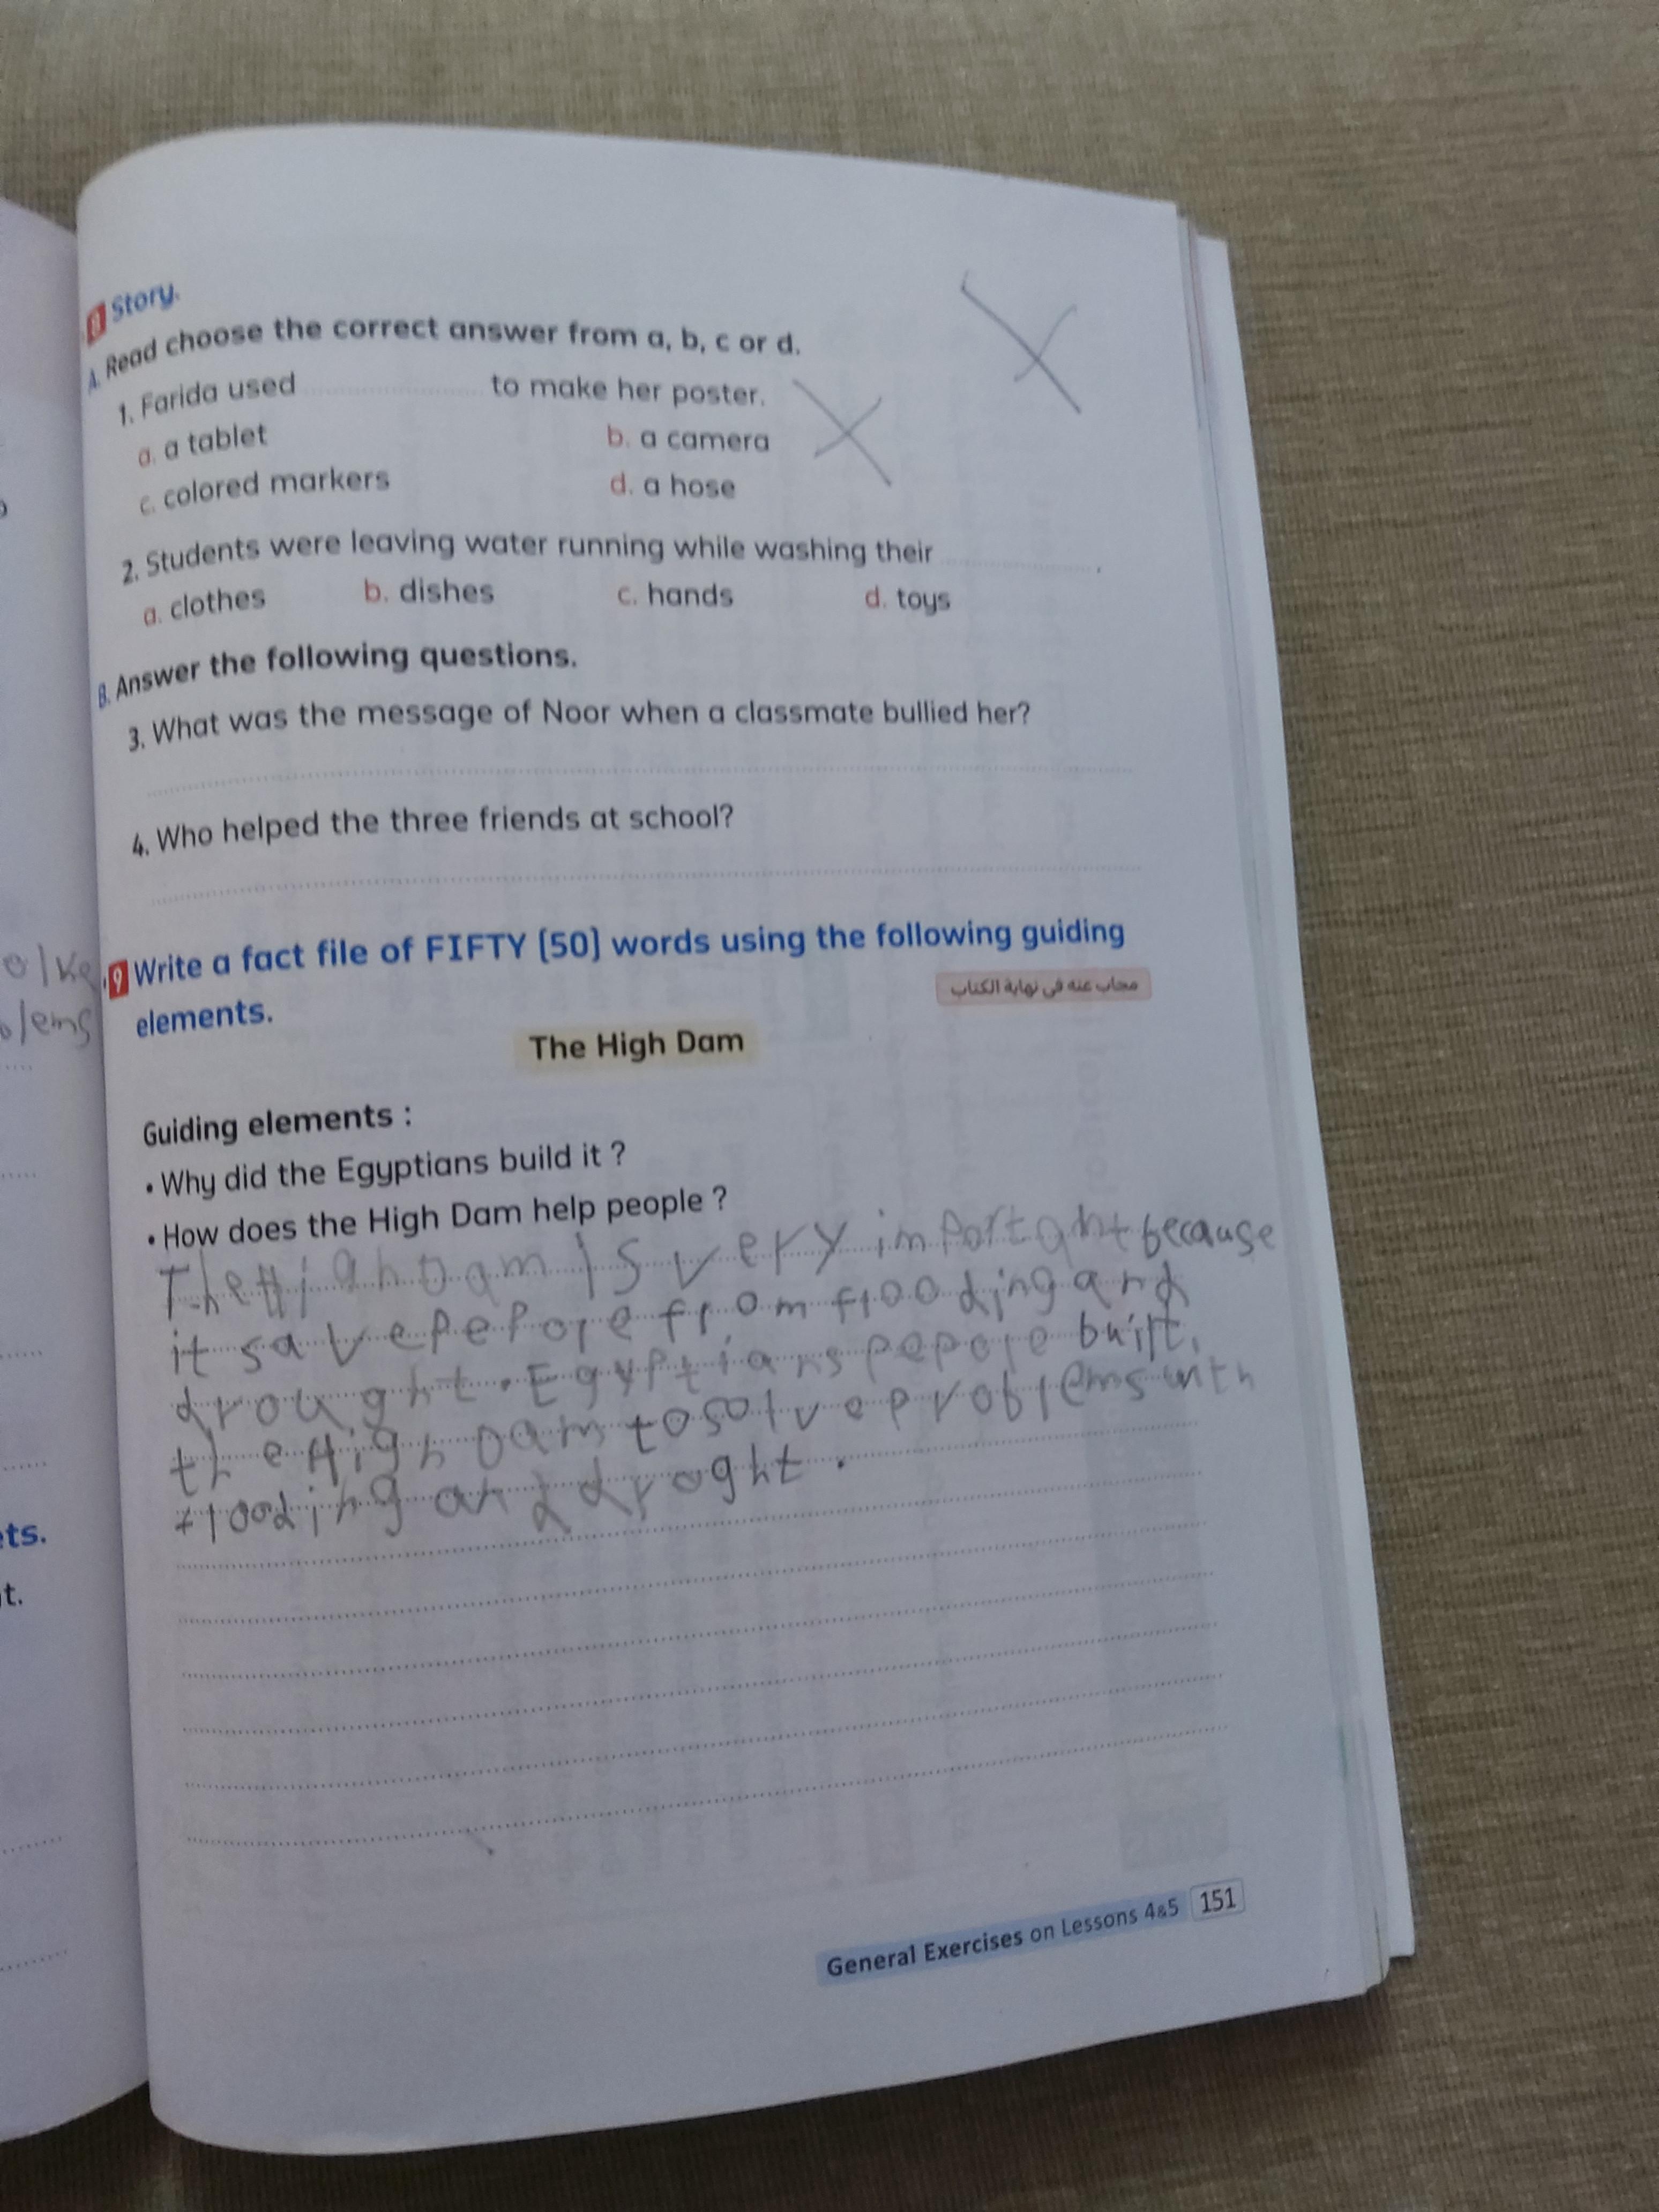 8 Story.
A. Read choose the correct answer from a, b, c or d.
1. Farida used .................... to make her poster.
a. a tablet b. a camera
c. colored markers d. a hose
2. Students were leaving water running while washing their .................... .
a. clothes b. dishes c. hands d. toys
B. Answer the following questions.
3. What was the message of Noor when a classmate bullied her?
4. Who helped the three friends at school?
9 Write a fact file of FIFTY (50) words using the following guiding
elements.
مجاب عنه في نهاية الكتاب
The High Dam
Guiding elements :
• Why did the Egyptians build it ?
• How does the High Dam help people ?
The High Dam is very important because
it save pepole from flooding and
drought. Egyptians pepole built
the High Dam to solve problems with
flooding and droght.
General Exercises on Lessons 4&5 151
olems
ts.
t.